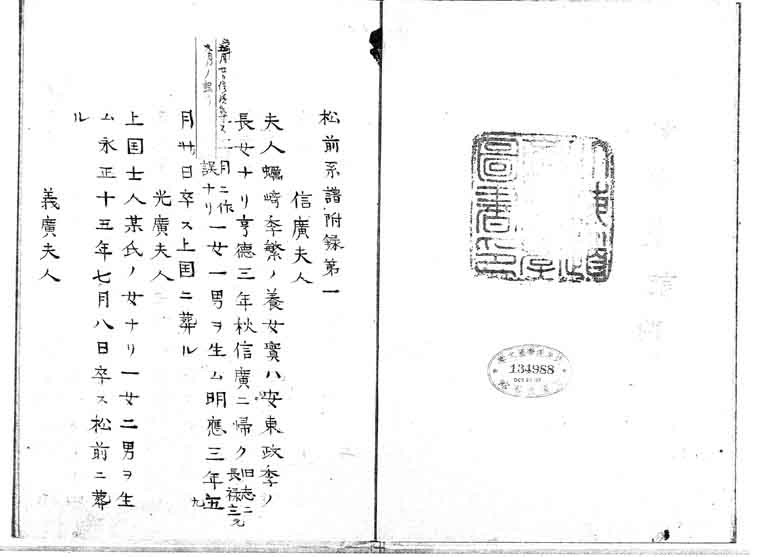 松前系譜附録第一
信廣夫人
夫人蠣崎季繁ノ養女實ハ安東政季ノ
長女ナリ亨徳三年秋信廣ニ帰ク旧志ニ長禄三元
月ニ作誤ナリ一女一男ヲ生ム明應三年五九
月廿日卒ス上国ニ葬ル
光廣夫人
上国士人某氏ノ女ナリ一女二男ヲ生
ム永正十三年七月八日卒ス松前ニ葬
ル
義廣夫人
134988